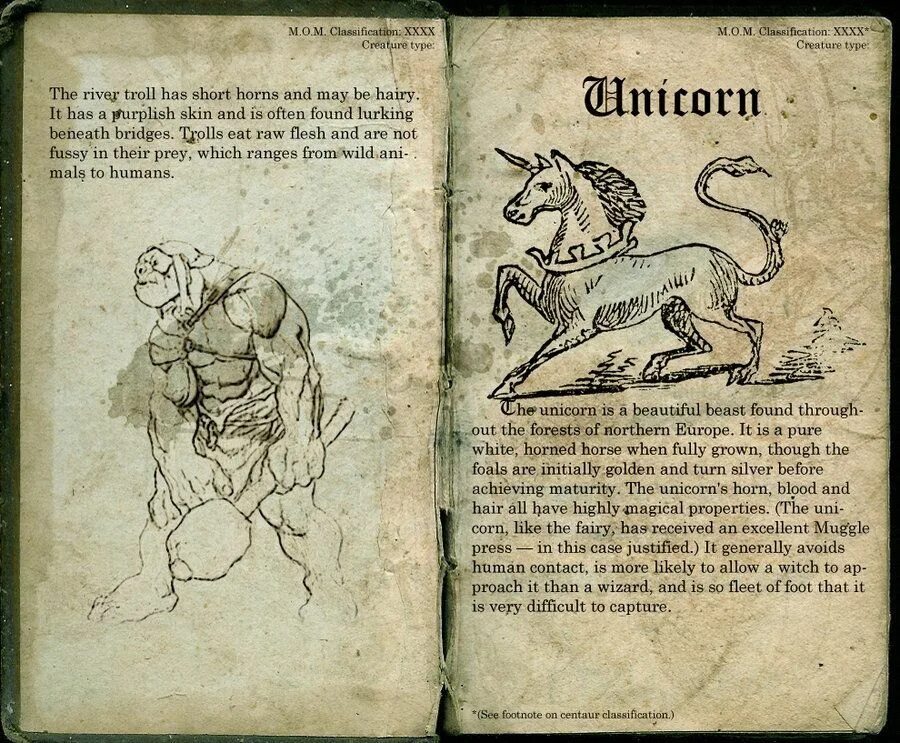 M.O.M. Classification: XXXX
Creature type:
The river troll has short horns and may be hairy.
It has a purplish skin and is often found lurking
beneath bridges. Trolls eat raw flesh and are not
fussy in their prey, which ranges from wild ani-
mals to humans.
M.O.M. Classification: XXXX*
Creature type:
Unicorn
The unicorn is a beautiful beast found through-
out the forests of northern Europe. It is a pure
white, horned horse when fully grown, though the
foals are initially golden and turn silver before
achieving maturity. The unicorn's horn, blood and
hair all have highly magical properties. (The uni-
corn, like the fairy, has received an excellent Muggle
press — in this case justified.) It generally avoids
human contact, is more likely to allow a witch to ap-
proach it than a wizard, and is so fleet of foot that it
is very difficult to capture.
*(See footnote on centaur classification.)